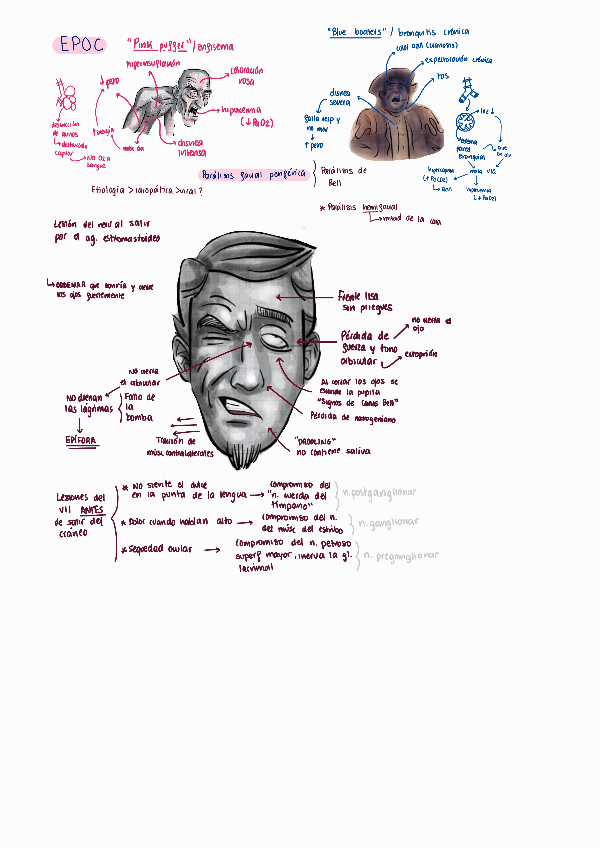 EPOC
"Pink puffer" / enfisema
hiperinsuflación
coloración
rosa
hipoxemia
(↓PaO2)
disnea
intensa
↓peso
↑energía
destrucción
de
↳destrucción
capilar
↳No O2 a
sangre
"Blue boaters" / bronquitis crónica
color azul (cianosis)
expectoración crónica
tos
disnea
severa
falla resp y
no mov
↑peso
luz↓
bronquial
moco
hipercapnia
(↑PaCO2)
hipoxemia
(↓PaO2)
Parálisis facial periférica
Parálisis de
Bell
Etiología > idiopática > viral?
* Parálisis hemifacial
↳mitad de la cara
Lesión del nervi al salir
por el ag. estilomastoideo
↳ORDENAR que sonría y cierre
los ojos fuertemente
Frente lisa
sin pliegues
Pérdida de
fuerza y tono
orbicular
no cierra el
ojo
ectropión
Al cerrar los ojos se
la pupila
"Signos de Bell"
Pérdida de nasogeniano
"DROOLING"
no contiene saliva
No cierra
el orbicular
No drenan
las lágrimas
Falla de
la
bomba
EPÍFORA
Tracción de
músc contralaterales
Lesiones del
VII ANTES
de salir del
cráneo
* No siente el dulce
en la punta de la lengua → compromiso del
"n. cuerda del
tímpano"
n.postganglionar
* Dolor cuando hablan alto → compromiso del n.
del músc del estribo
n. ganglionar
* Sequedad ocular → compromiso del n. petroso
superf mayor, inerva la gl.
lacrimal
n. preganglionar